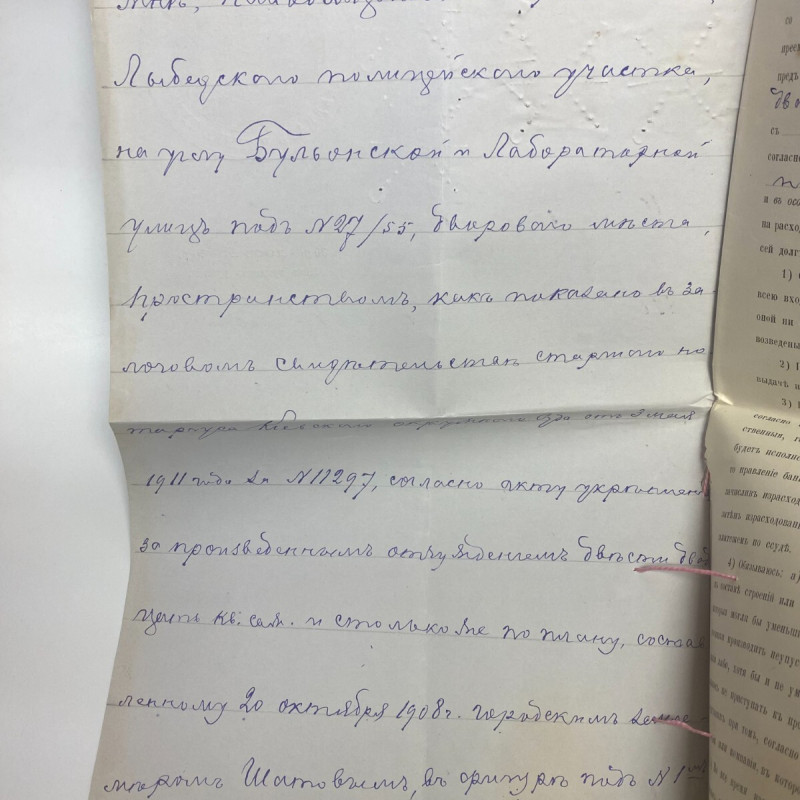 Лыбедского полицейского участка,
на углу Бульонской и Лабораторной
улицъ подъ №27/55, дворового мѣста,
пространствомъ, какъ показано въ за
логовомъ свидѣтельствѣ старшаго но
таріуса Кіевского окружного суда отъ 3 мая
1911 года за №11297, согласно акту укрѣпленія
за произведеннымъ отчужденіемъ двѣсти два
цать кв. саж. и столько же по плану, состав
ленному 20 октября 1908 г. городскимъ земле-
мѣромъ Шатовымъ, въ фигурѣ подъ №1мъ
со
предъ
съ
согласно
на расход
сей долг
1)
всею вхо
оной ни
возведены
2)
выдачѣ
3)
согласно
ственныя,
будетъ исполне
правленіе бан
израсход
израсходован
по ссудѣ.
4) Обязываюсь: а)
строеній или
могла бы уменьши
производить неупус
хотя бы и не ум
не приступать къ про
при томъ, согласно
въ которое